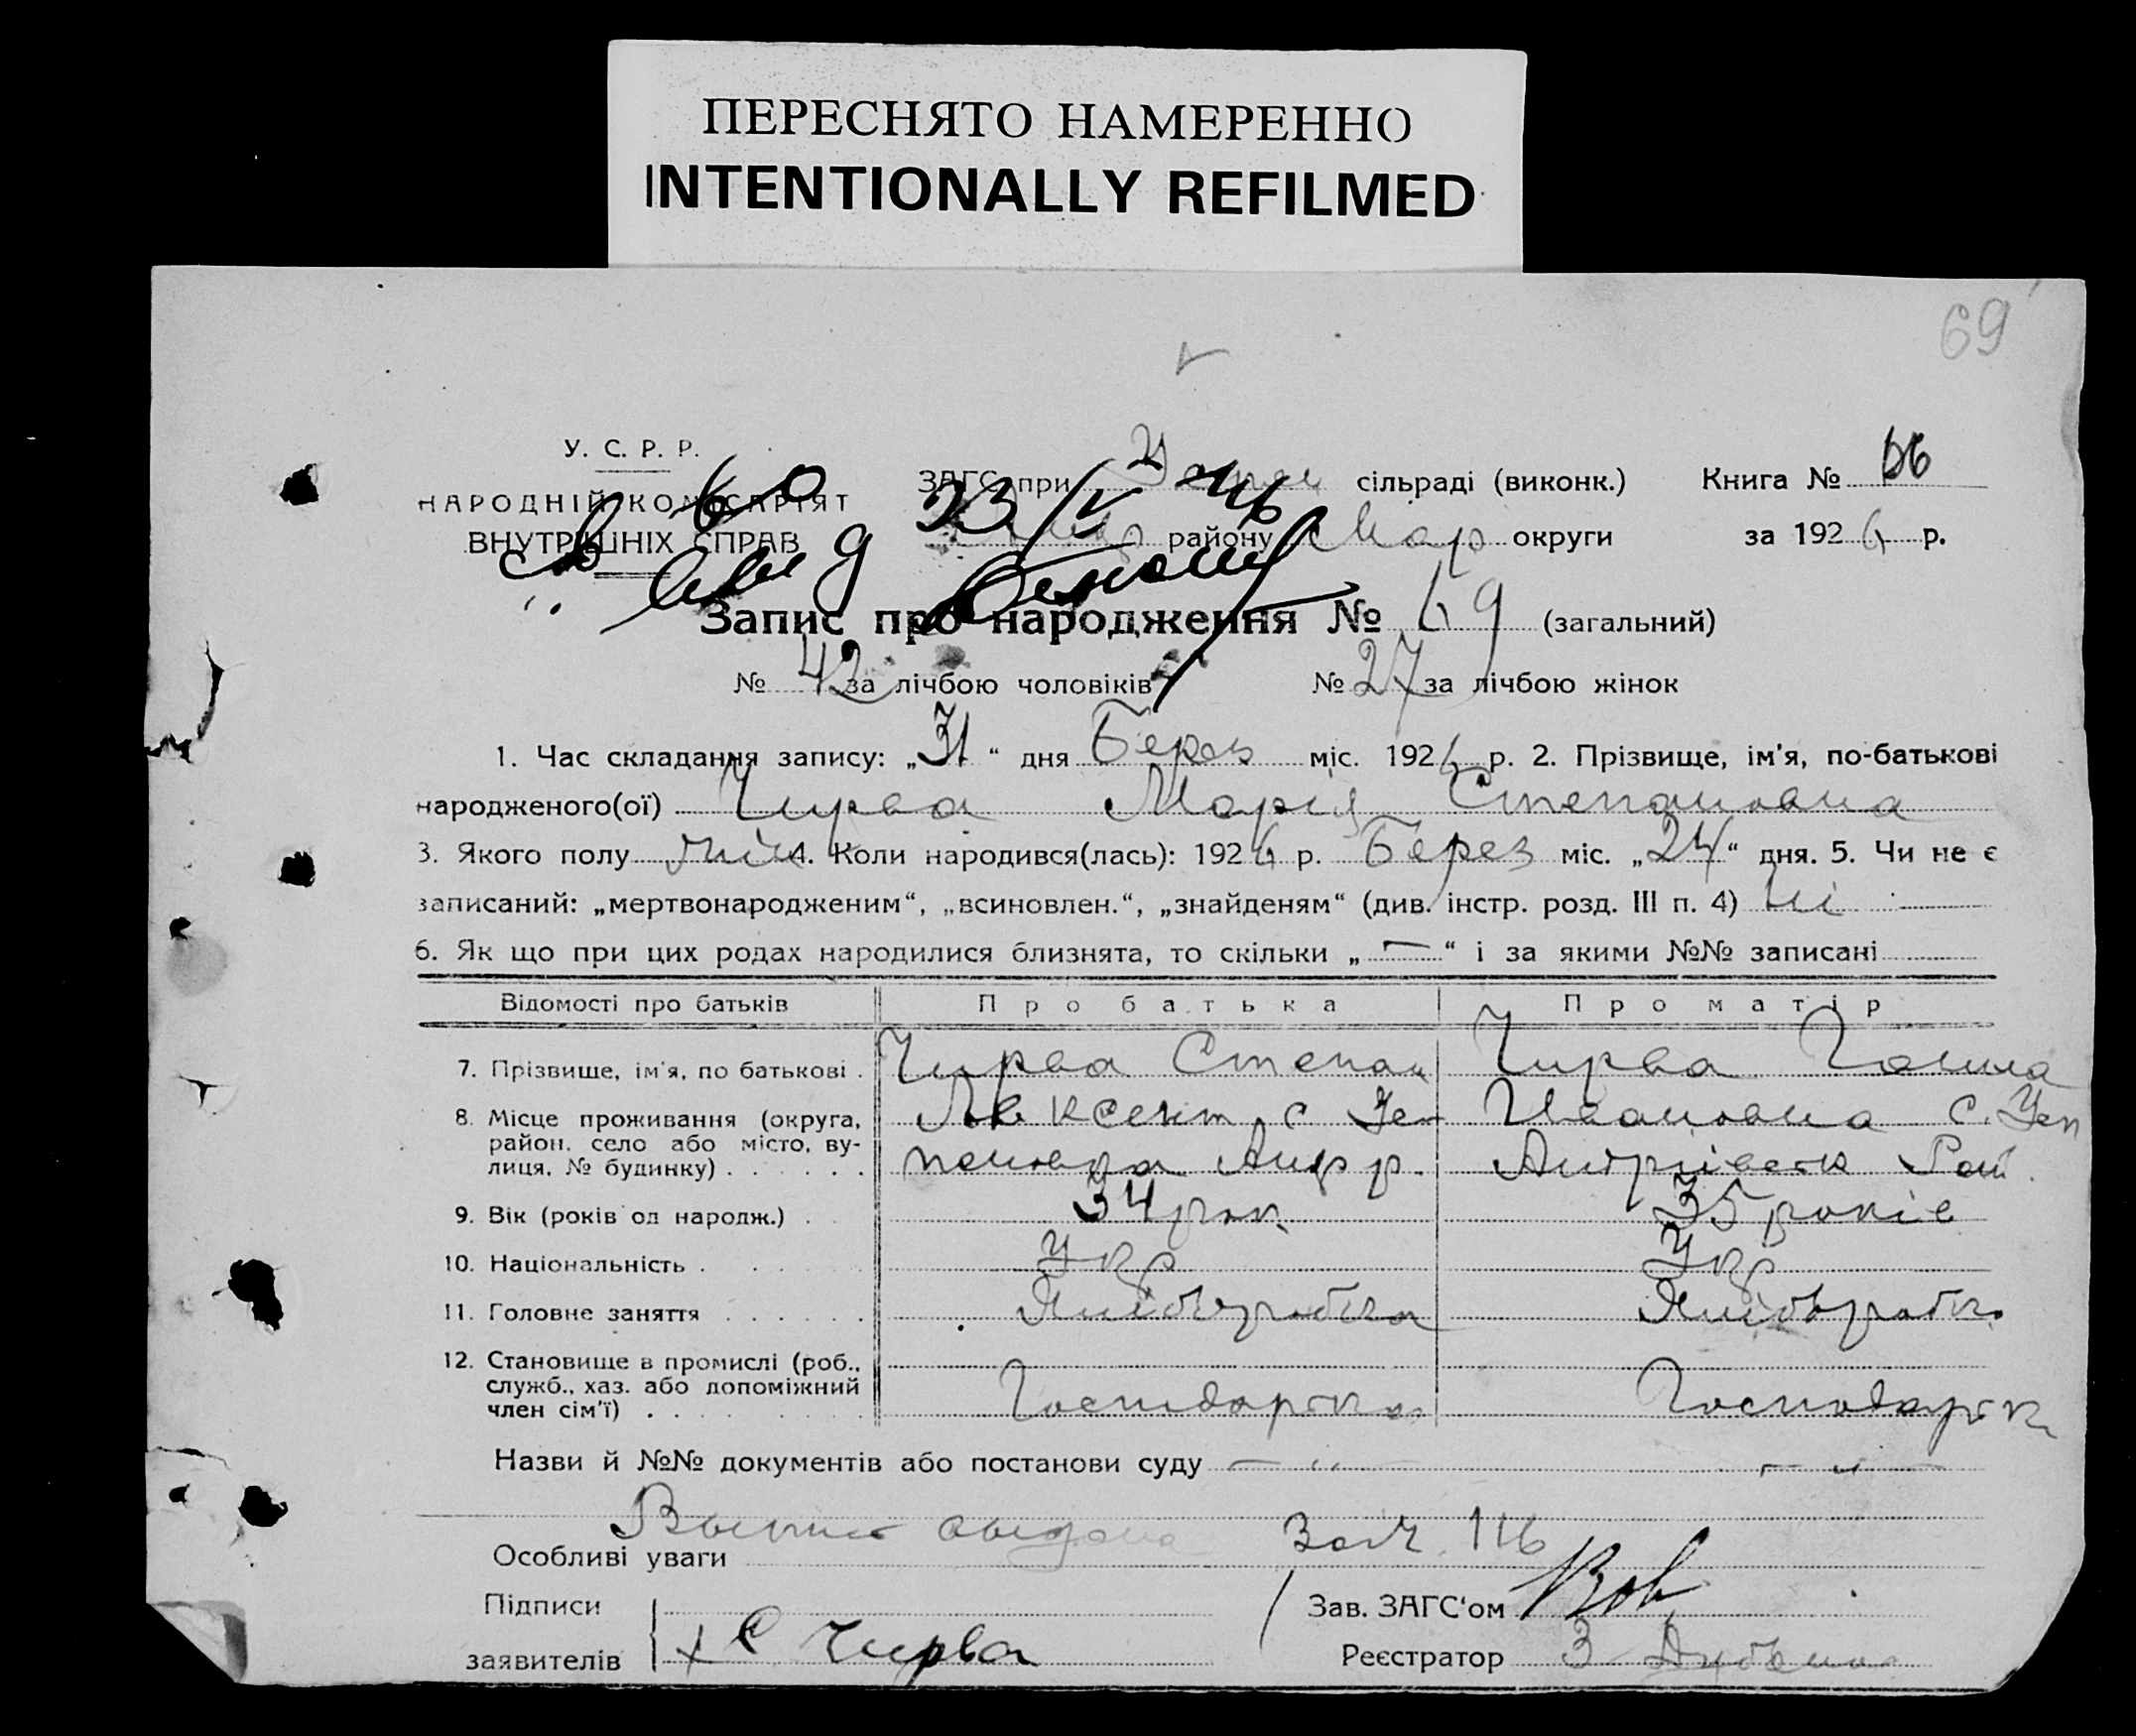 ПЕРЕСНЯТО НАМЕРЕННО
INTENTIONALLY REFILMED
69
У. С. Р. Р.
НАРОДНІЙ КОМІСАРІЯТ
ВНУТРІШНІХ СПРАВ
ЗАГС при сільраді (виконк.) Книга №
23/V 46
району Мар округи за 1926 р.
Запис про народження № 69 (загальний)
№ 42 за лічбою чоловіків № 27 за лічбою жінок
1. Час складання запису: „31“ дня Берез міс. 1926 р. 2. Прізвище, ім'я, по-батькові
народженого(ої) Чирва Марія Степановна
3. Якого полу жін 4. Коли народився(лась): 1926 р. Берез міс. „24“ дня. 5. Чи не є
записаний: „мертвонародженим“, „всиновлен.“, „знайденям“ (див. інстр. розд. III п. 4) ні
6. Як що при цих родах народилися близнята, то скільки „—“ і за якими №№ записані
Відомості про батьків Про батька Про матір
7. Прізвище, ім'я, по батькові . Чирва Степан Чирва
8. Місце проживання (округа, район, село або місто, вулиця, № будинку) . . . . . . Авксент с. Андр р. Ивановна с. Андріевск Рай.
9. Вік (років од народж.) . 34 рок 35 років
10. Національність . Укр Укр
11. Головне заняття . . . . . . Хліборобка Хлібороб
12. Становище в промислі (роб., служб., хаз. або допоміжний член сім'ї) . Господарка Господарк
Назви й №№ документів або постанови суду — „ — — „ —
116
Особливі уваги
Підписи Зав. ЗАГС'ом
заявителів + С Чирва Реєстратор З